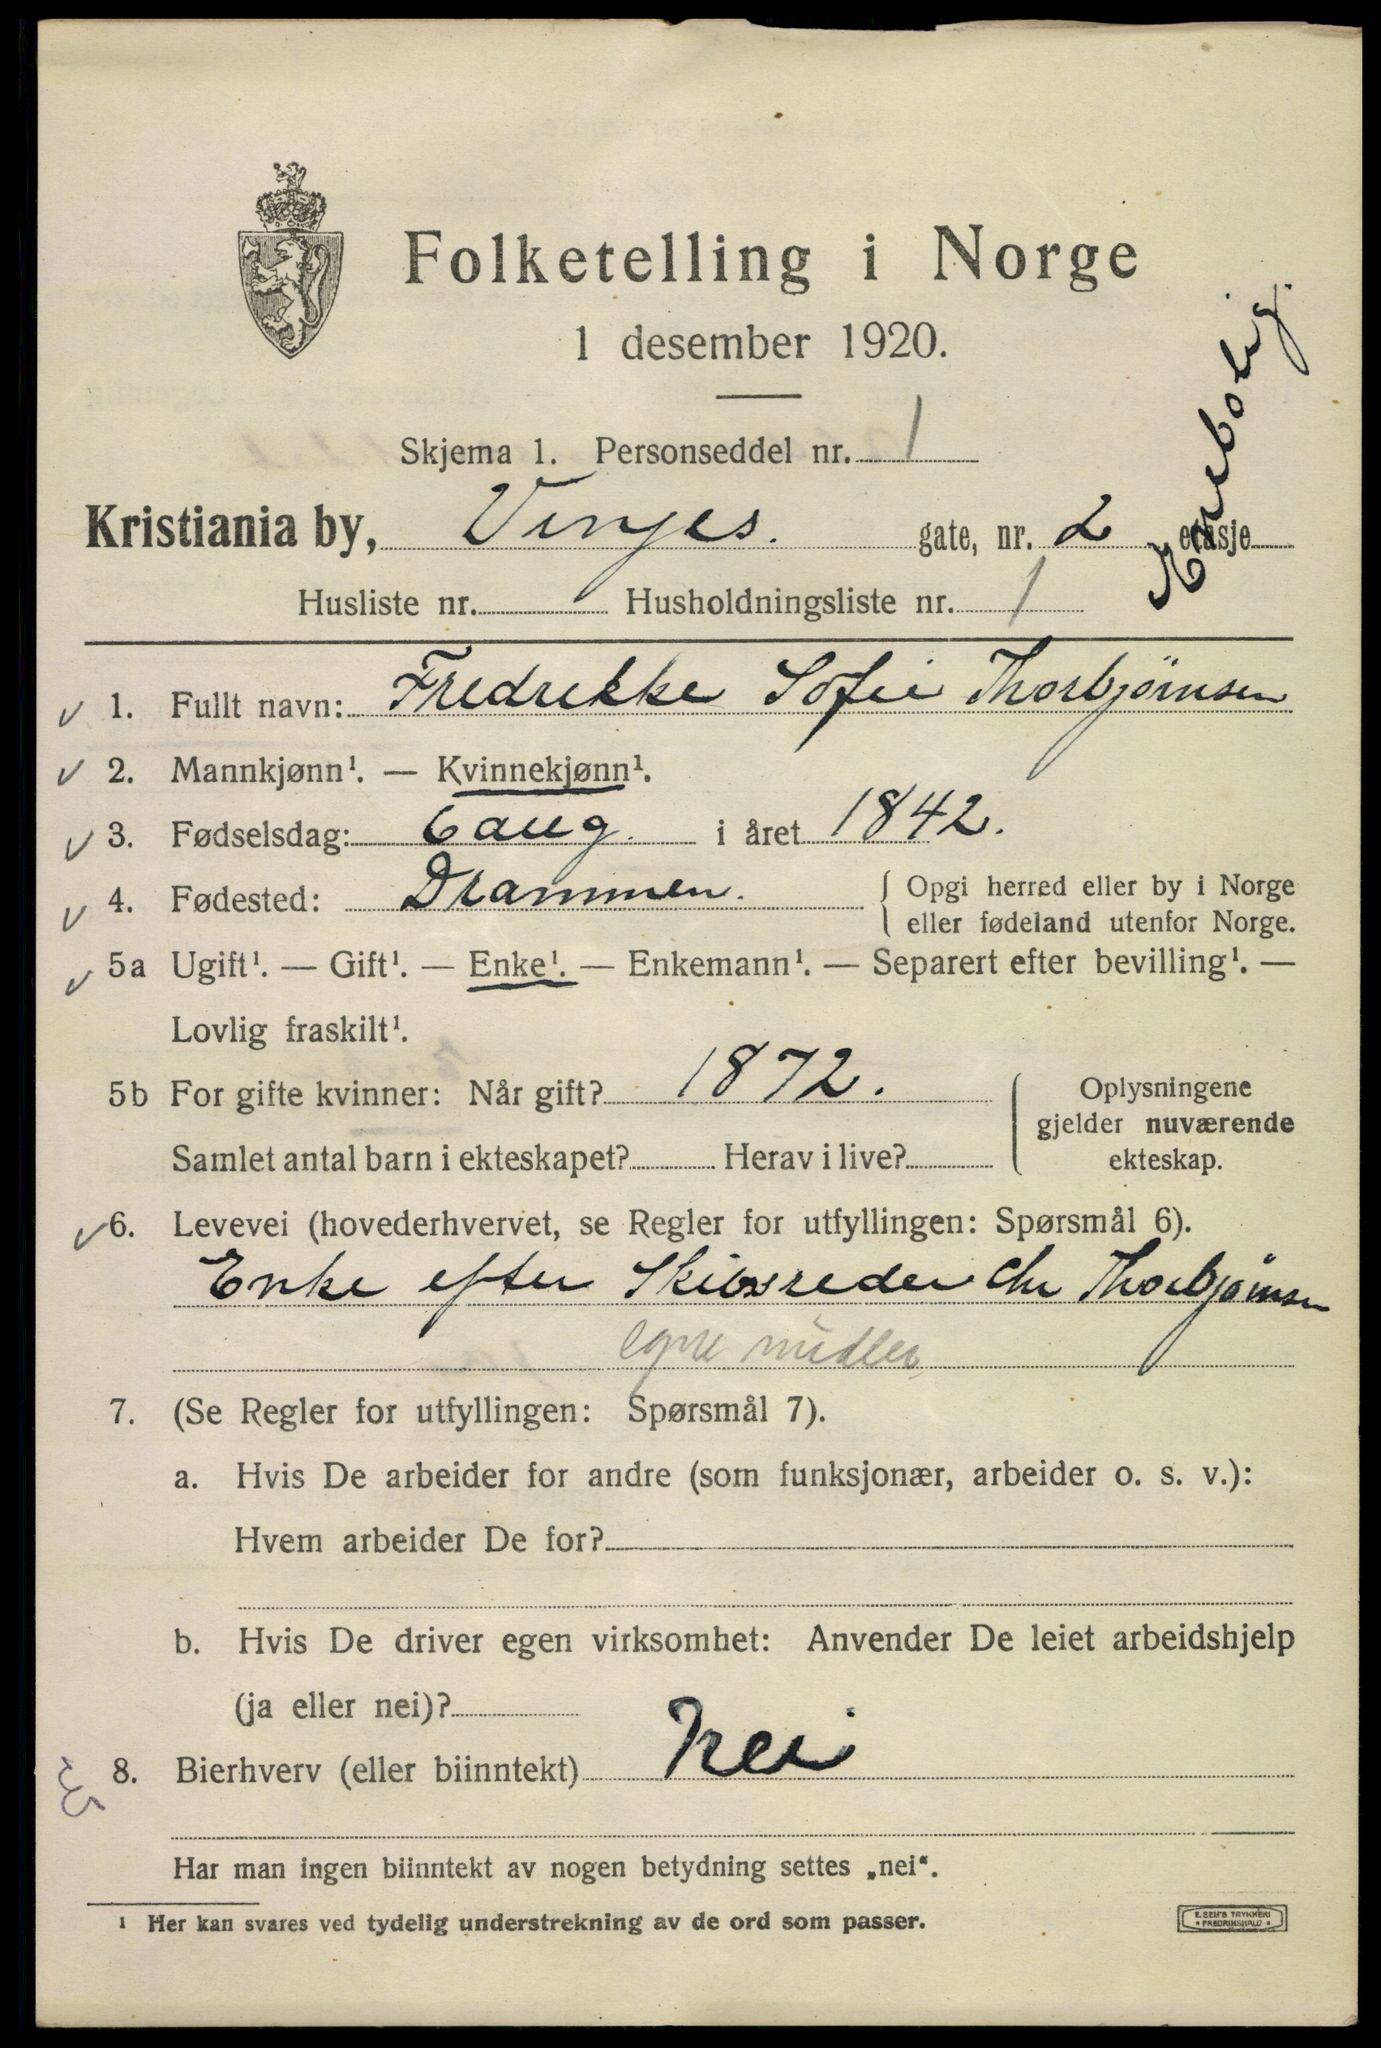 Folketelling i Norge
1 desember 1920.
Skjema 1. Personseddel nr. 1
Kristiania by, Vinjes. gate, nr. 2 etasje
Enebolig.
Husliste nr. Husholdningsliste nr. 1
1. Fullt navn: Fredrikke Sofie Thorbjørnsen
2. Mannkjønn¹. — Kvinnekjønn¹.
3. Fødselsdag: 6 aug. i året 1842.
4. Fødested: Drammen. { Opgi herred eller by i Norge
eller fødeland utenfor Norge.
5a Ugift¹. — Gift¹. — Enke¹. — Enkemann¹. — Separert efter bevilling¹. —
Lovlig fraskilt¹.
5b For gifte kvinner: Når gift? 1872. { Oplysningene
gjelder nuværende
Samlet antal barn i ekteskapet? Herav i live? ekteskap.
6. Levevei (hovederhvervet, se Regler for utfyllingen: Spørsmål 6).
Enke efter Skibsreder Chr Thorbjørnsen
egne midler
7. (Se Regler for utfyllingen: Spørsmål 7).
a. Hvis De arbeider for andre (som funksjonær, arbeider o. s. v.):
Hvem arbeider De for?
b. Hvis De driver egen virksomhet: Anvender De leiet arbeidshjelp
(ja eller nei)?
8. Bierhverv (eller biinntekt) Nei
Har man ingen biinntekt av nogen betydning settes „nei“.
¹ Her kan svares ved tydelig understrekning av de ord som passer.
E. SEM'S TRYKKERI
• FREDRIKSHALD •